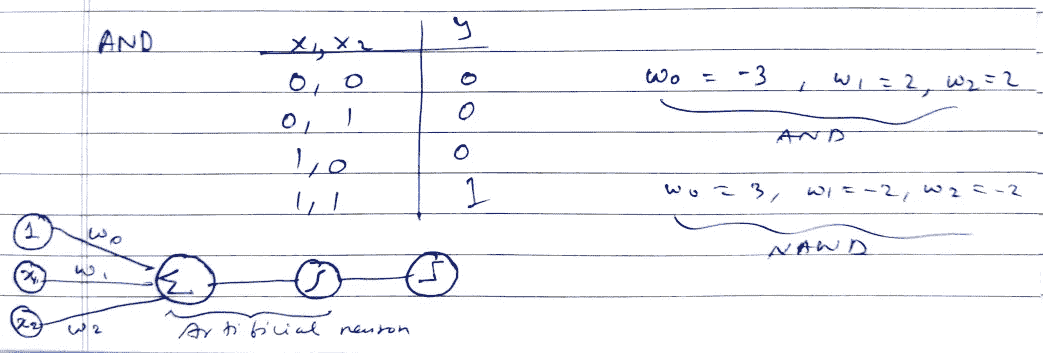 AND
x1, x2 y
0, 0 0
0, 1 0
1, 0 0
1, 1 1
w0 = -3, w1 = 2, w2 = 2
AND
w0 = 3, w1 = -2, w2 = -2
NAND
1 w0
x1 w1 Σ ∫
x2 w2
Artificial neuron